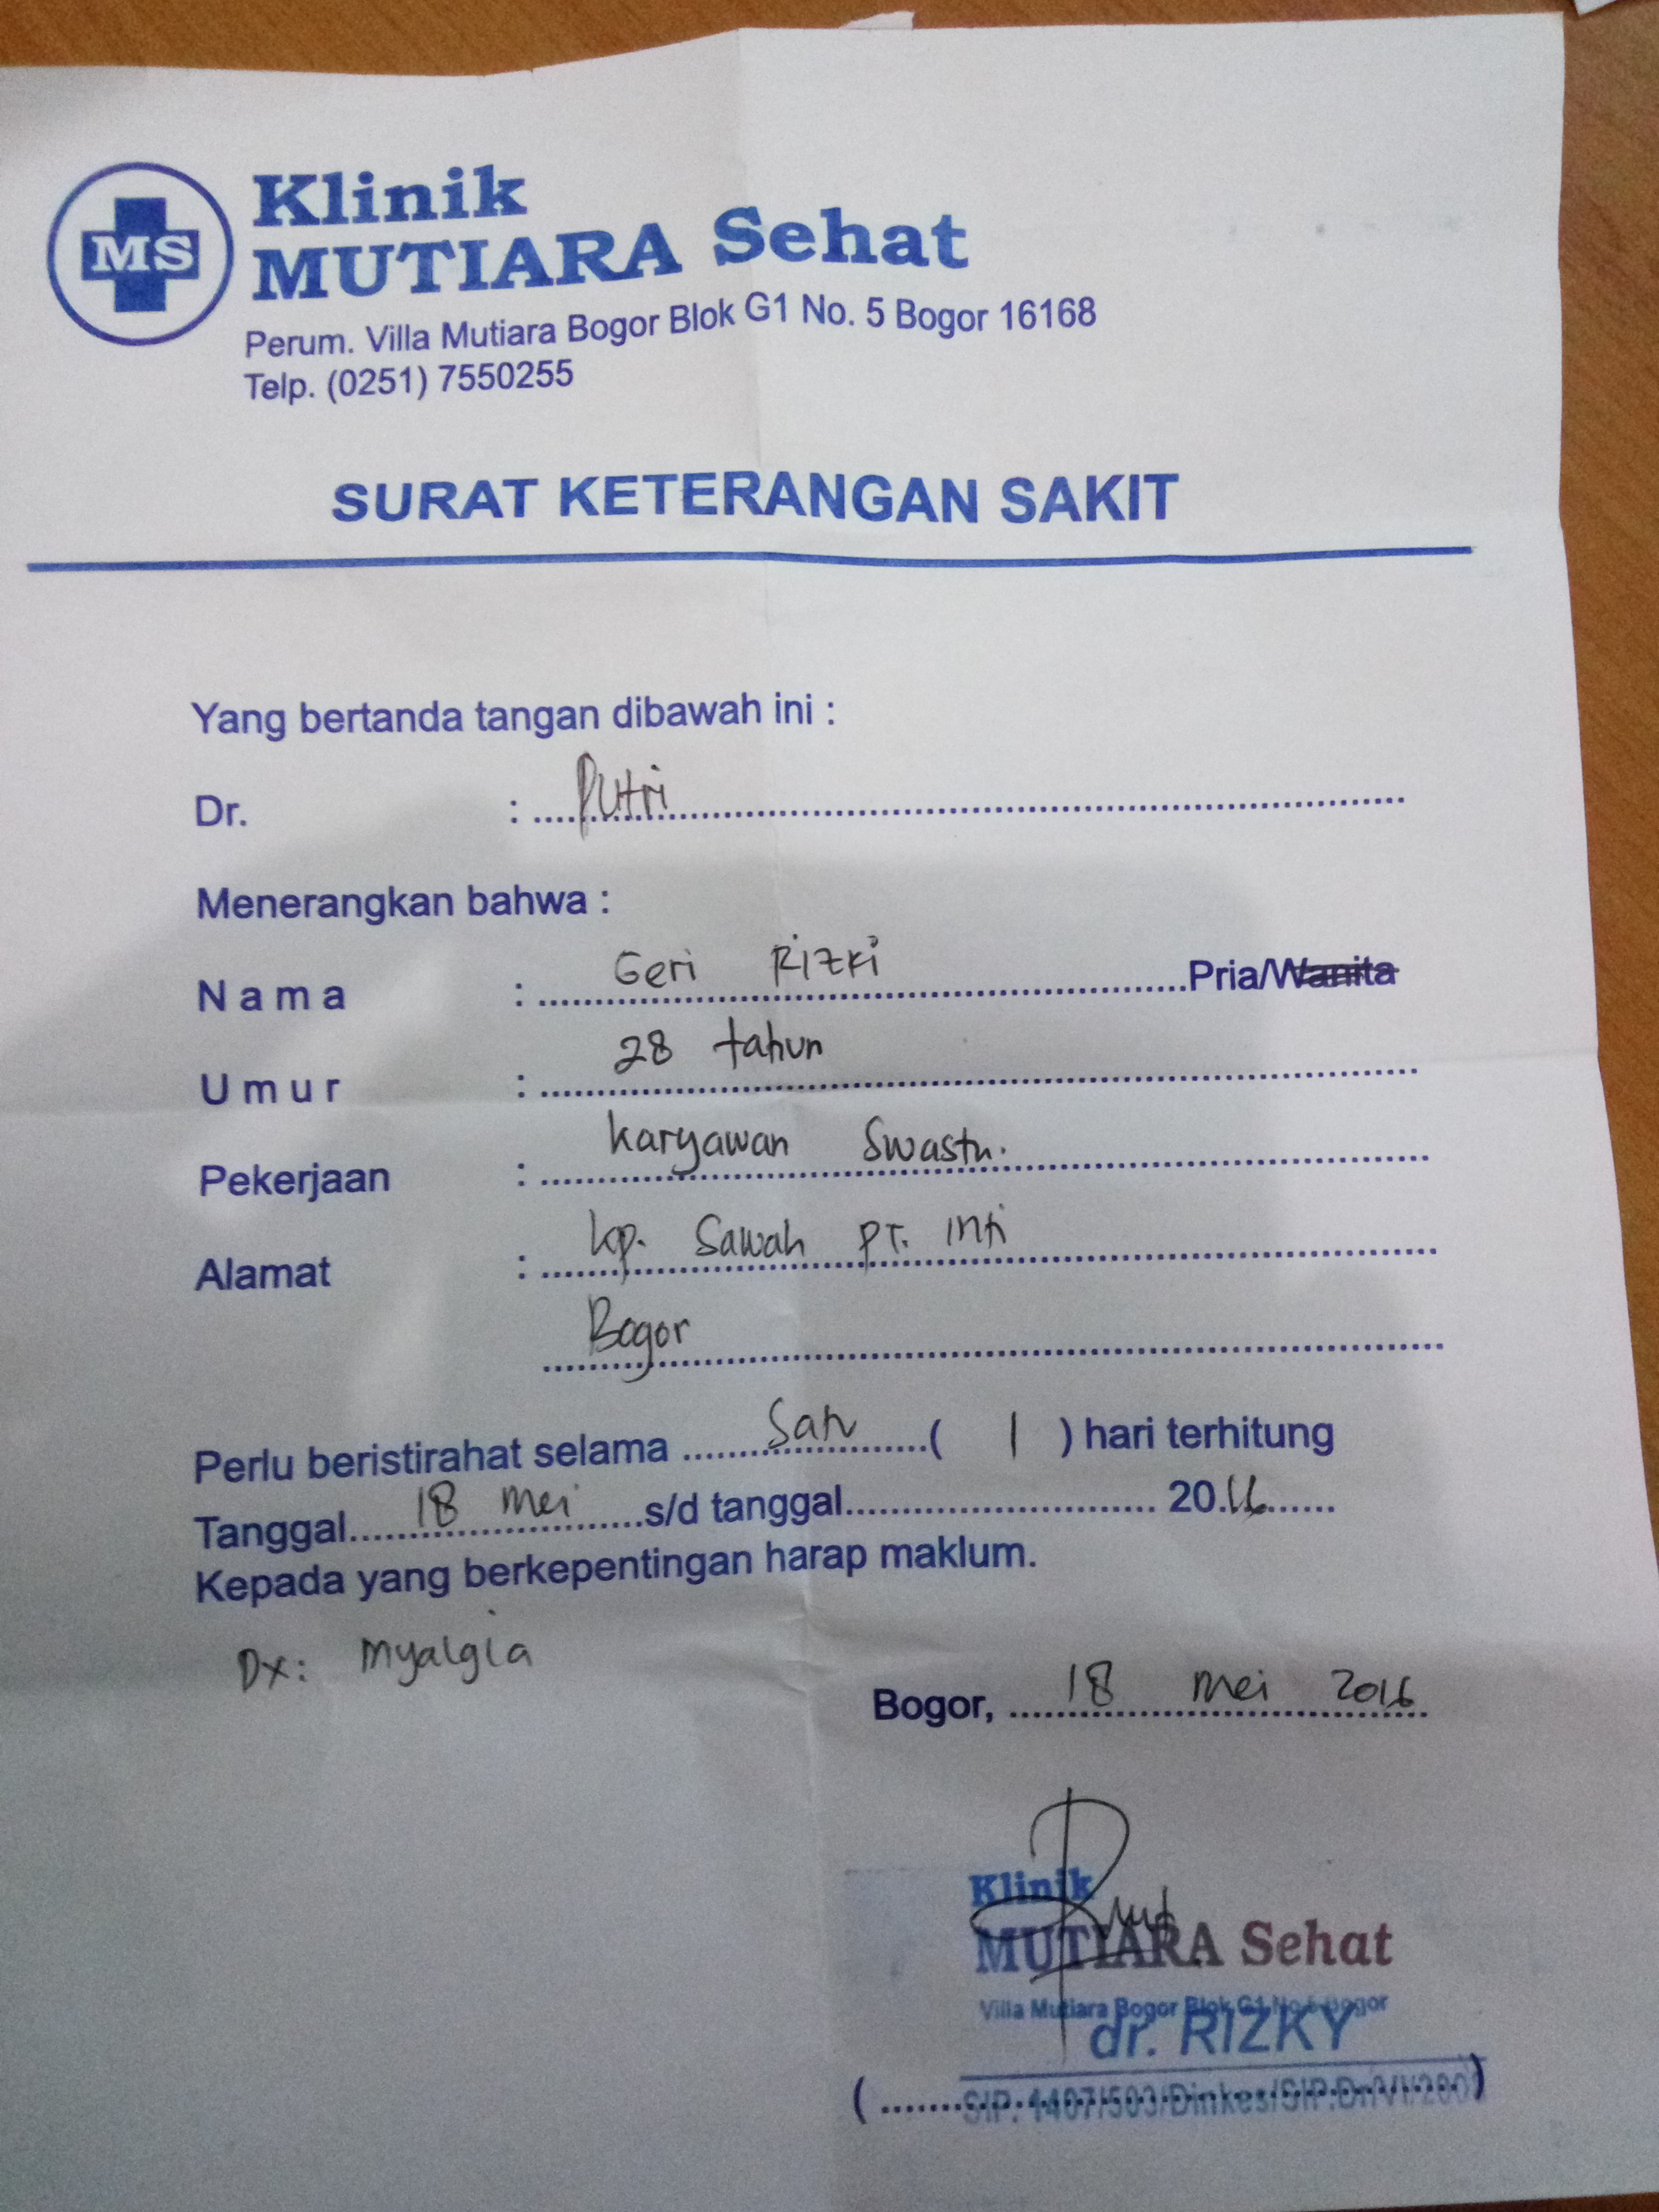 MS
Klinik
MUTIARA Sehat
Perum. Villa Mutiara Bogor Blok G1 No. 5 Bogor 16168
Telp. (0251) 7550255
SURAT KETERANGAN SAKIT
Yang bertanda tangan dibawah ini :
Dr. : Putri
Menerangkan bahwa :
Nama : Geri Rizki Pria/Wanita
Umur : 28 tahun
Pekerjaan : Karyawan Swasta.
Alamat : kp. Sawah PT. Inti
Bogor
Perlu beristirahat selama Satu ( 1 ) hari terhitung
Tanggal 18 Mei s/d tanggal 2016
Kepada yang berkepentingan harap maklum.
Dx: Myalgia
Bogor, 18 Mei 2016
Klinik
MUTIARA Sehat
Villa Mutiara Bogor Blok G1 No.5 Bogor
dr. RIZKY
SIP. 1407/503/Dinkes/SIP.